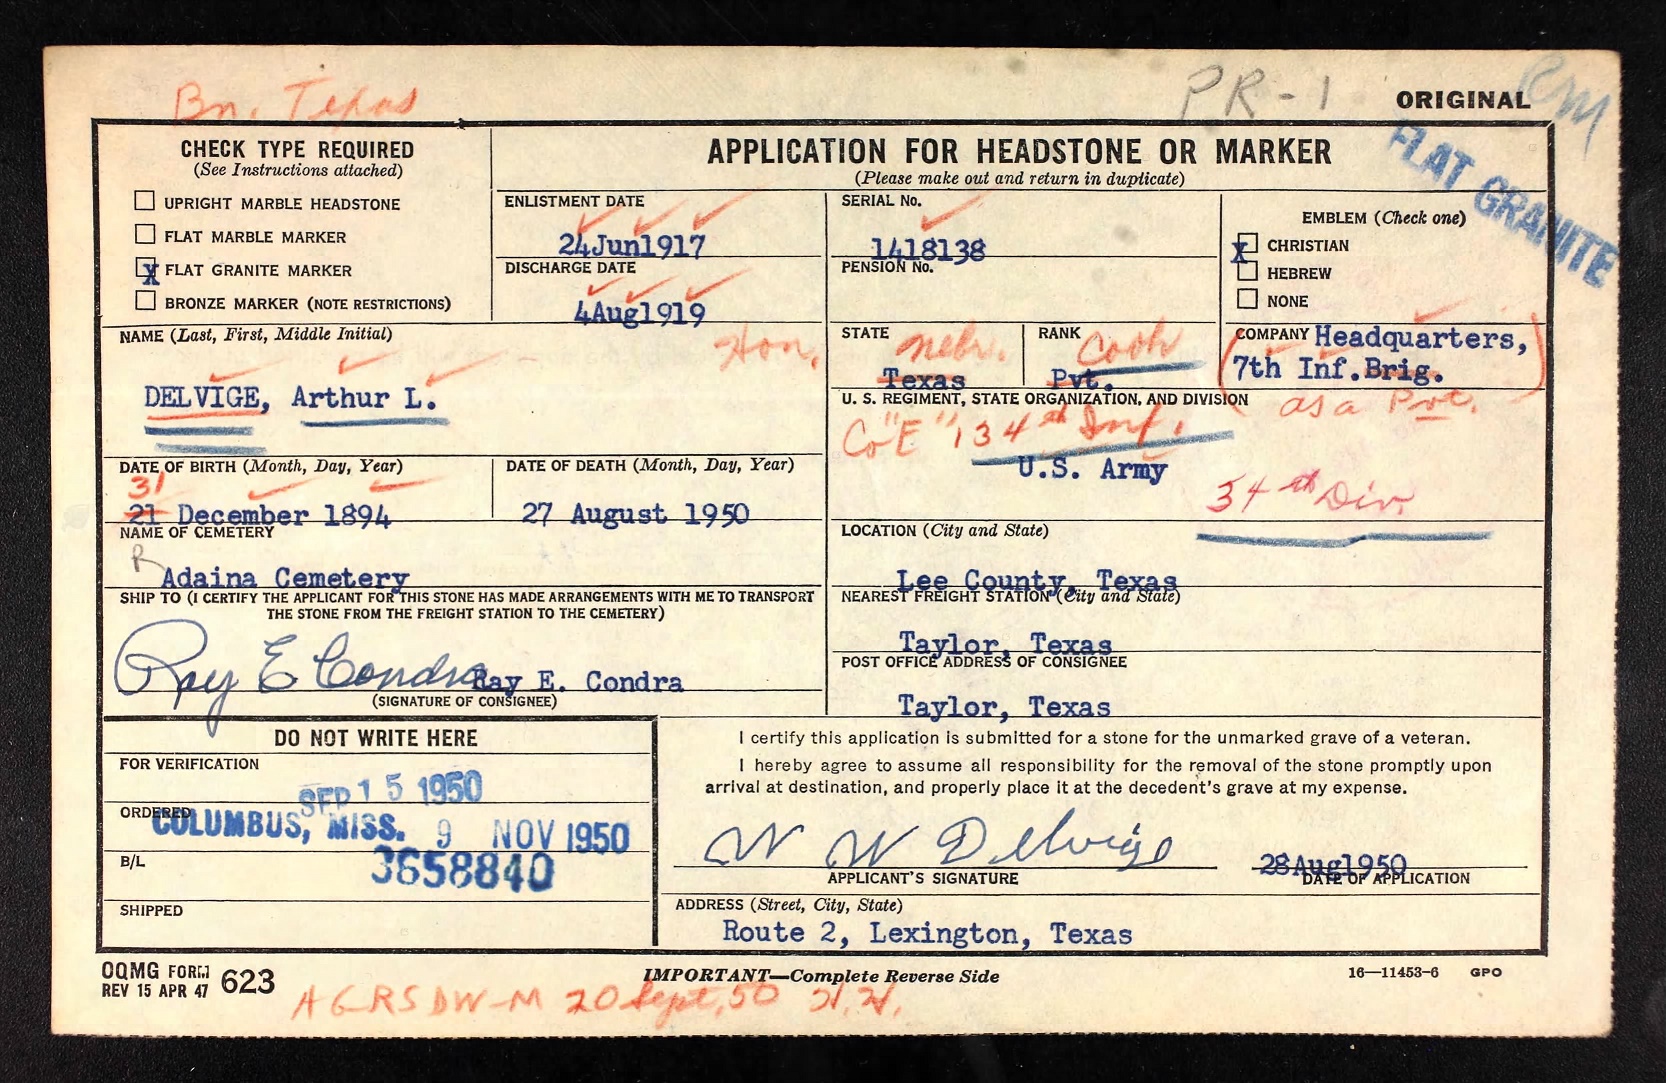 Bn. Texas
PR-1
ORIGINAL
RM
FLAT GRANITE
CHECK TYPE REQUIRED
(See Instructions attached)
UPRIGHT MARBLE HEADSTONE
FLAT MARBLE MARKER
X FLAT GRANITE MARKER
BRONZE MARKER (NOTE RESTRICTIONS)
APPLICATION FOR HEADSTONE OR MARKER
(Please make out and return in duplicate)
ENLISTMENT DATE
24Jun1917
DISCHARGE DATE
4Aug1919
SERIAL No.
1418138
PENSION No.
EMBLEM (Check one)
X CHRISTIAN
HEBREW
NONE
NAME (Last, First, Middle Initial)
Hon.
DELVIGE, Arthur L.
STATE
Nebr.
Texas
RANK
Cook
Pvt.
COMPANY Headquarters,
7th Inf.Brig.
as a Pvt.
U. S. REGIMENT, STATE ORGANIZATION, AND DIVISION
Co "E" 134th Inf.
U.S. Army
34th Div.
DATE OF BIRTH (Month, Day, Year)
31
21 December 1894
DATE OF DEATH (Month, Day, Year)
27 August 1950
NAME OF CEMETERY
R
Adaina Cemetery
LOCATION (City and State)
Lee County, Texas
SHIP TO (I CERTIFY THE APPLICANT FOR THIS STONE HAS MADE ARRANGEMENTS WITH ME TO TRANSPORT
THE STONE FROM THE FREIGHT STATION TO THE CEMETERY)
Ray E Condra Ray E. Condra
(SIGNATURE OF CONSIGNEE)
NEAREST FREIGHT STATION (City and State)
Taylor, Texas
POST OFFICE ADDRESS OF CONSIGNEE
Taylor, Texas
DO NOT WRITE HERE
FOR VERIFICATION
SEP 15 1950
ORDERED
COLUMBUS, MISS. 9 NOV 1950
B/L
3658840
SHIPPED
I certify this application is submitted for a stone for the unmarked grave of a veteran.
I hereby agree to assume all responsibility for the removal of the stone promptly upon
arrival at destination, and properly place it at the decedent's grave at my expense.
W W Delvige
APPLICANT'S SIGNATURE
28Aug1950
DATE OF APPLICATION
ADDRESS (Street, City, State)
Route 2, Lexington, Texas
OQMG FORM 623
REV 15 APR 47
IMPORTANT—Complete Reverse Side
16—11453-6 GPO
AGRS DW-M 20 Sept, 50